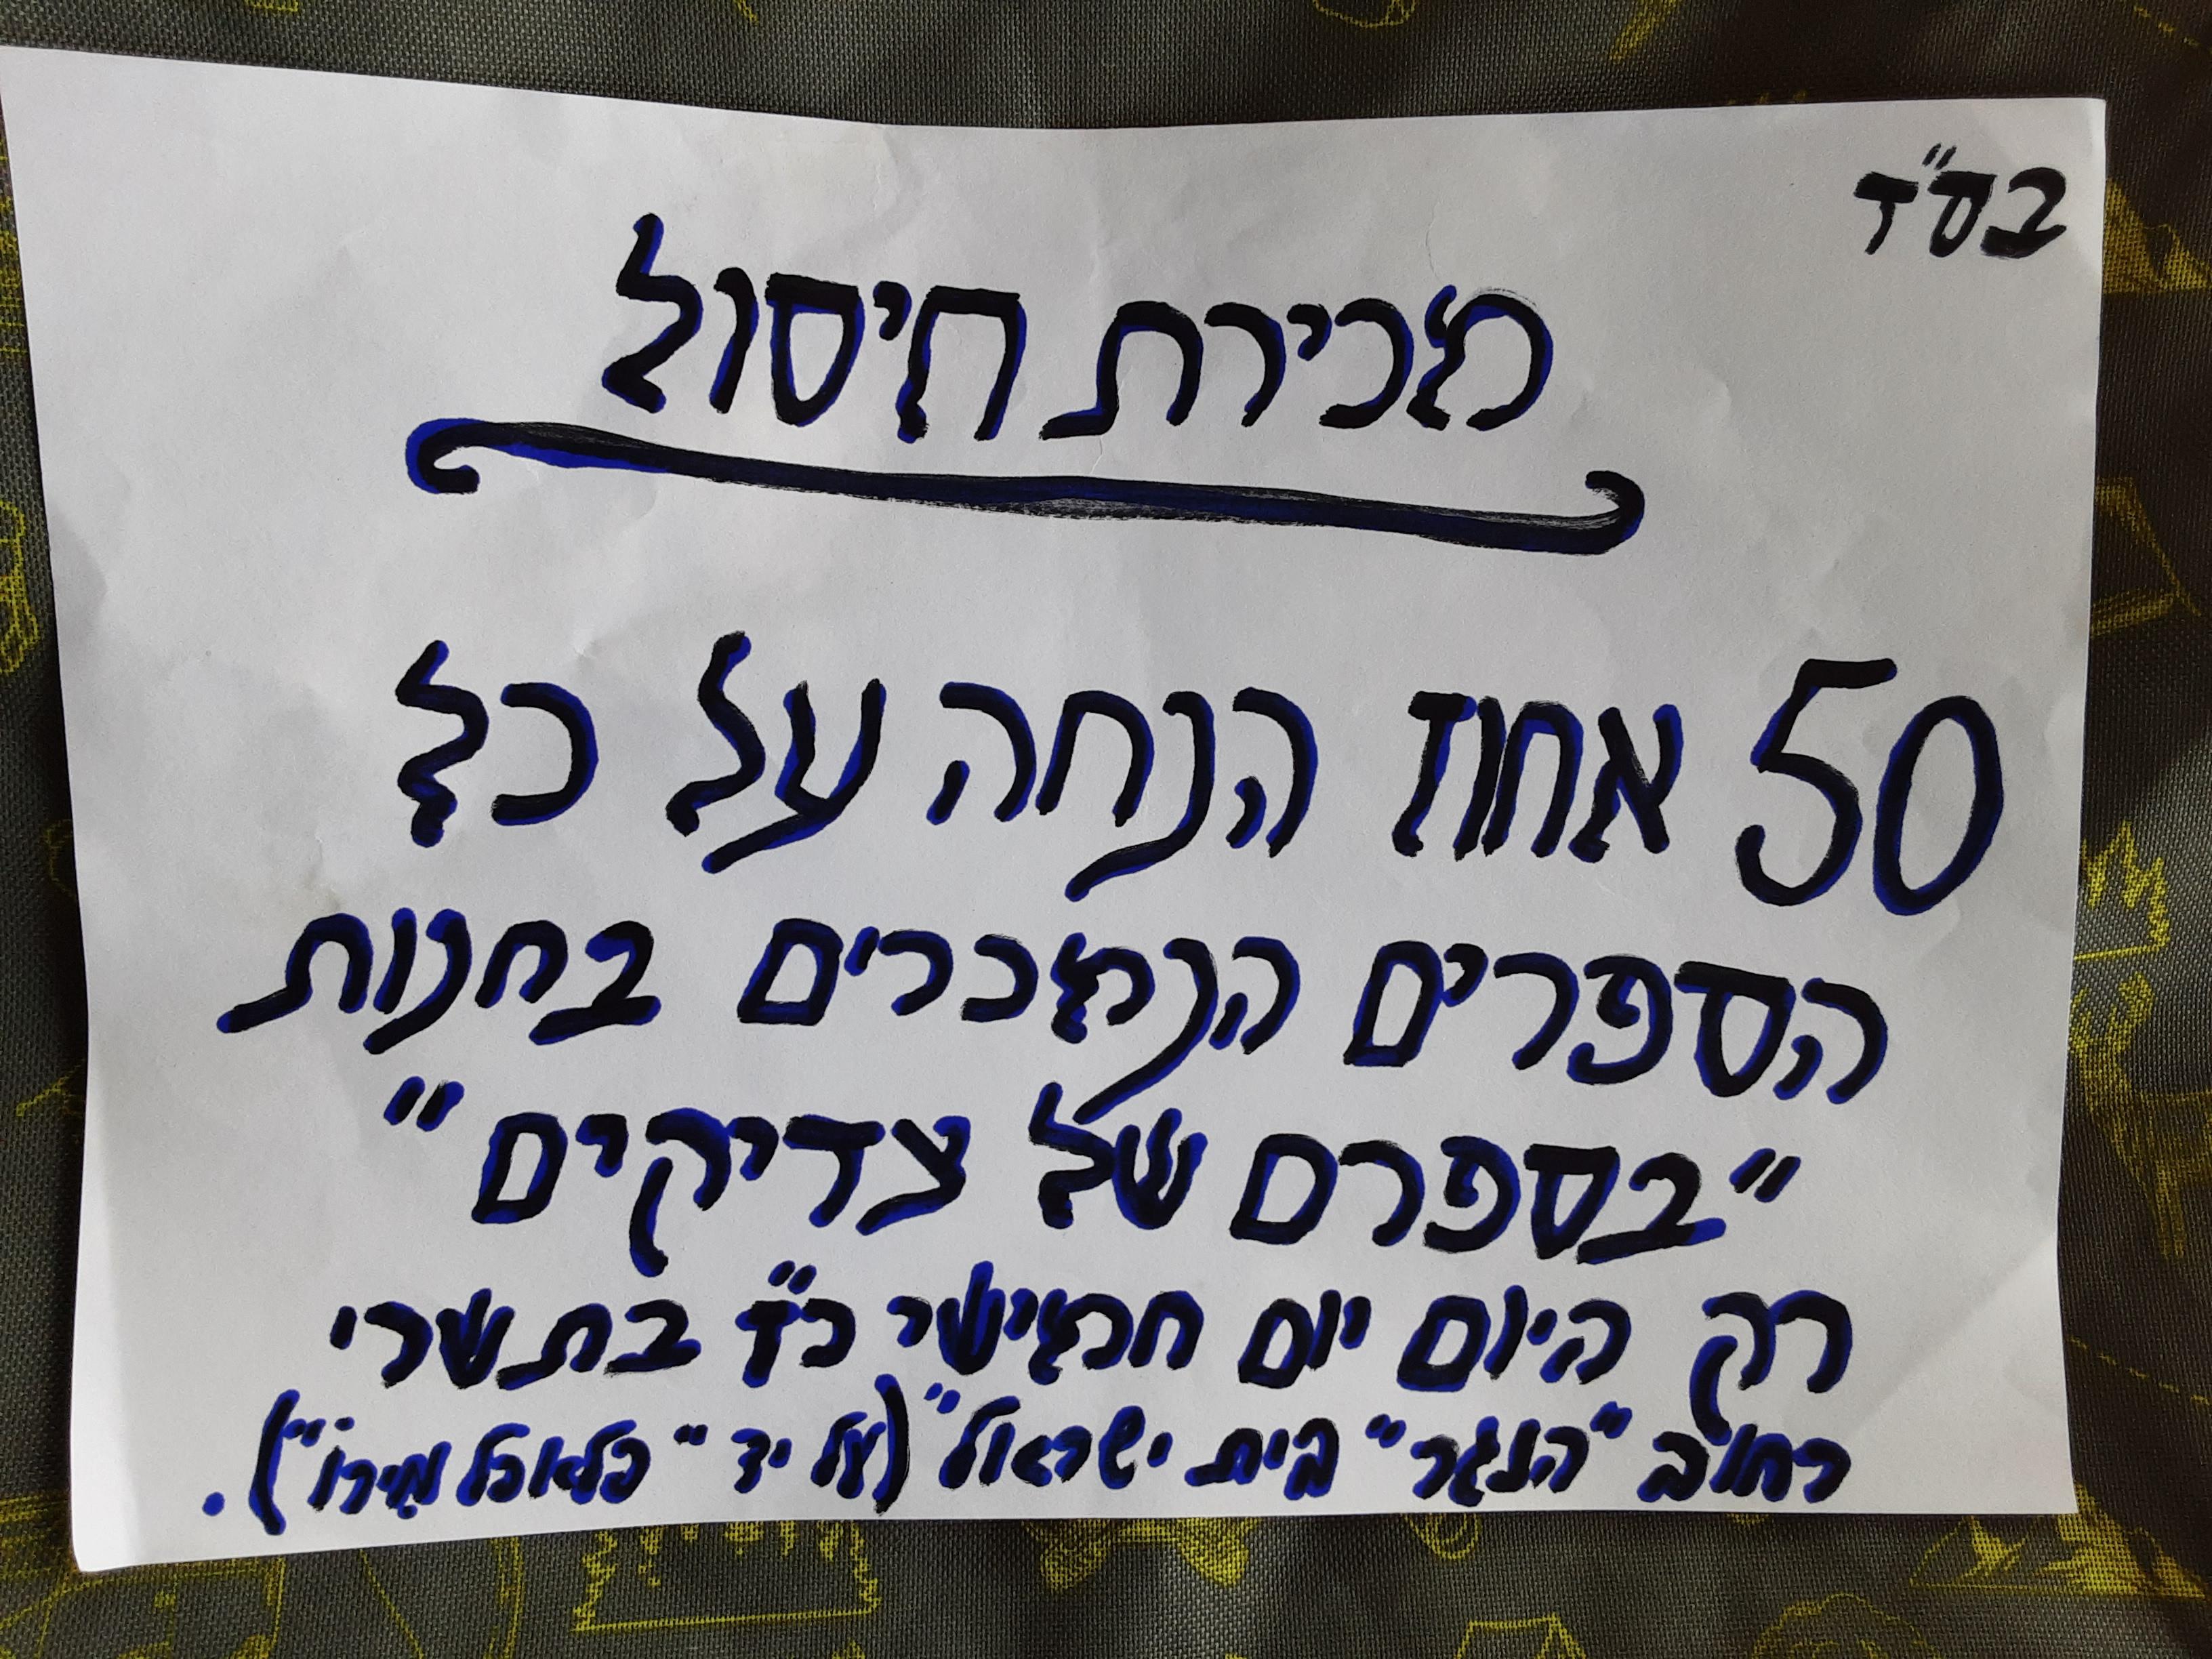 בס"ד
מכירת חיסול
50 אחוז הנחה על כל
הספרים הנמכרים בחנות
"בספרם של צדיקים"
רק היום יום חמישי כ"ד בתשרי
רחוב "הנגר" בית ישראל" (על יד "כלאוכל מירו").